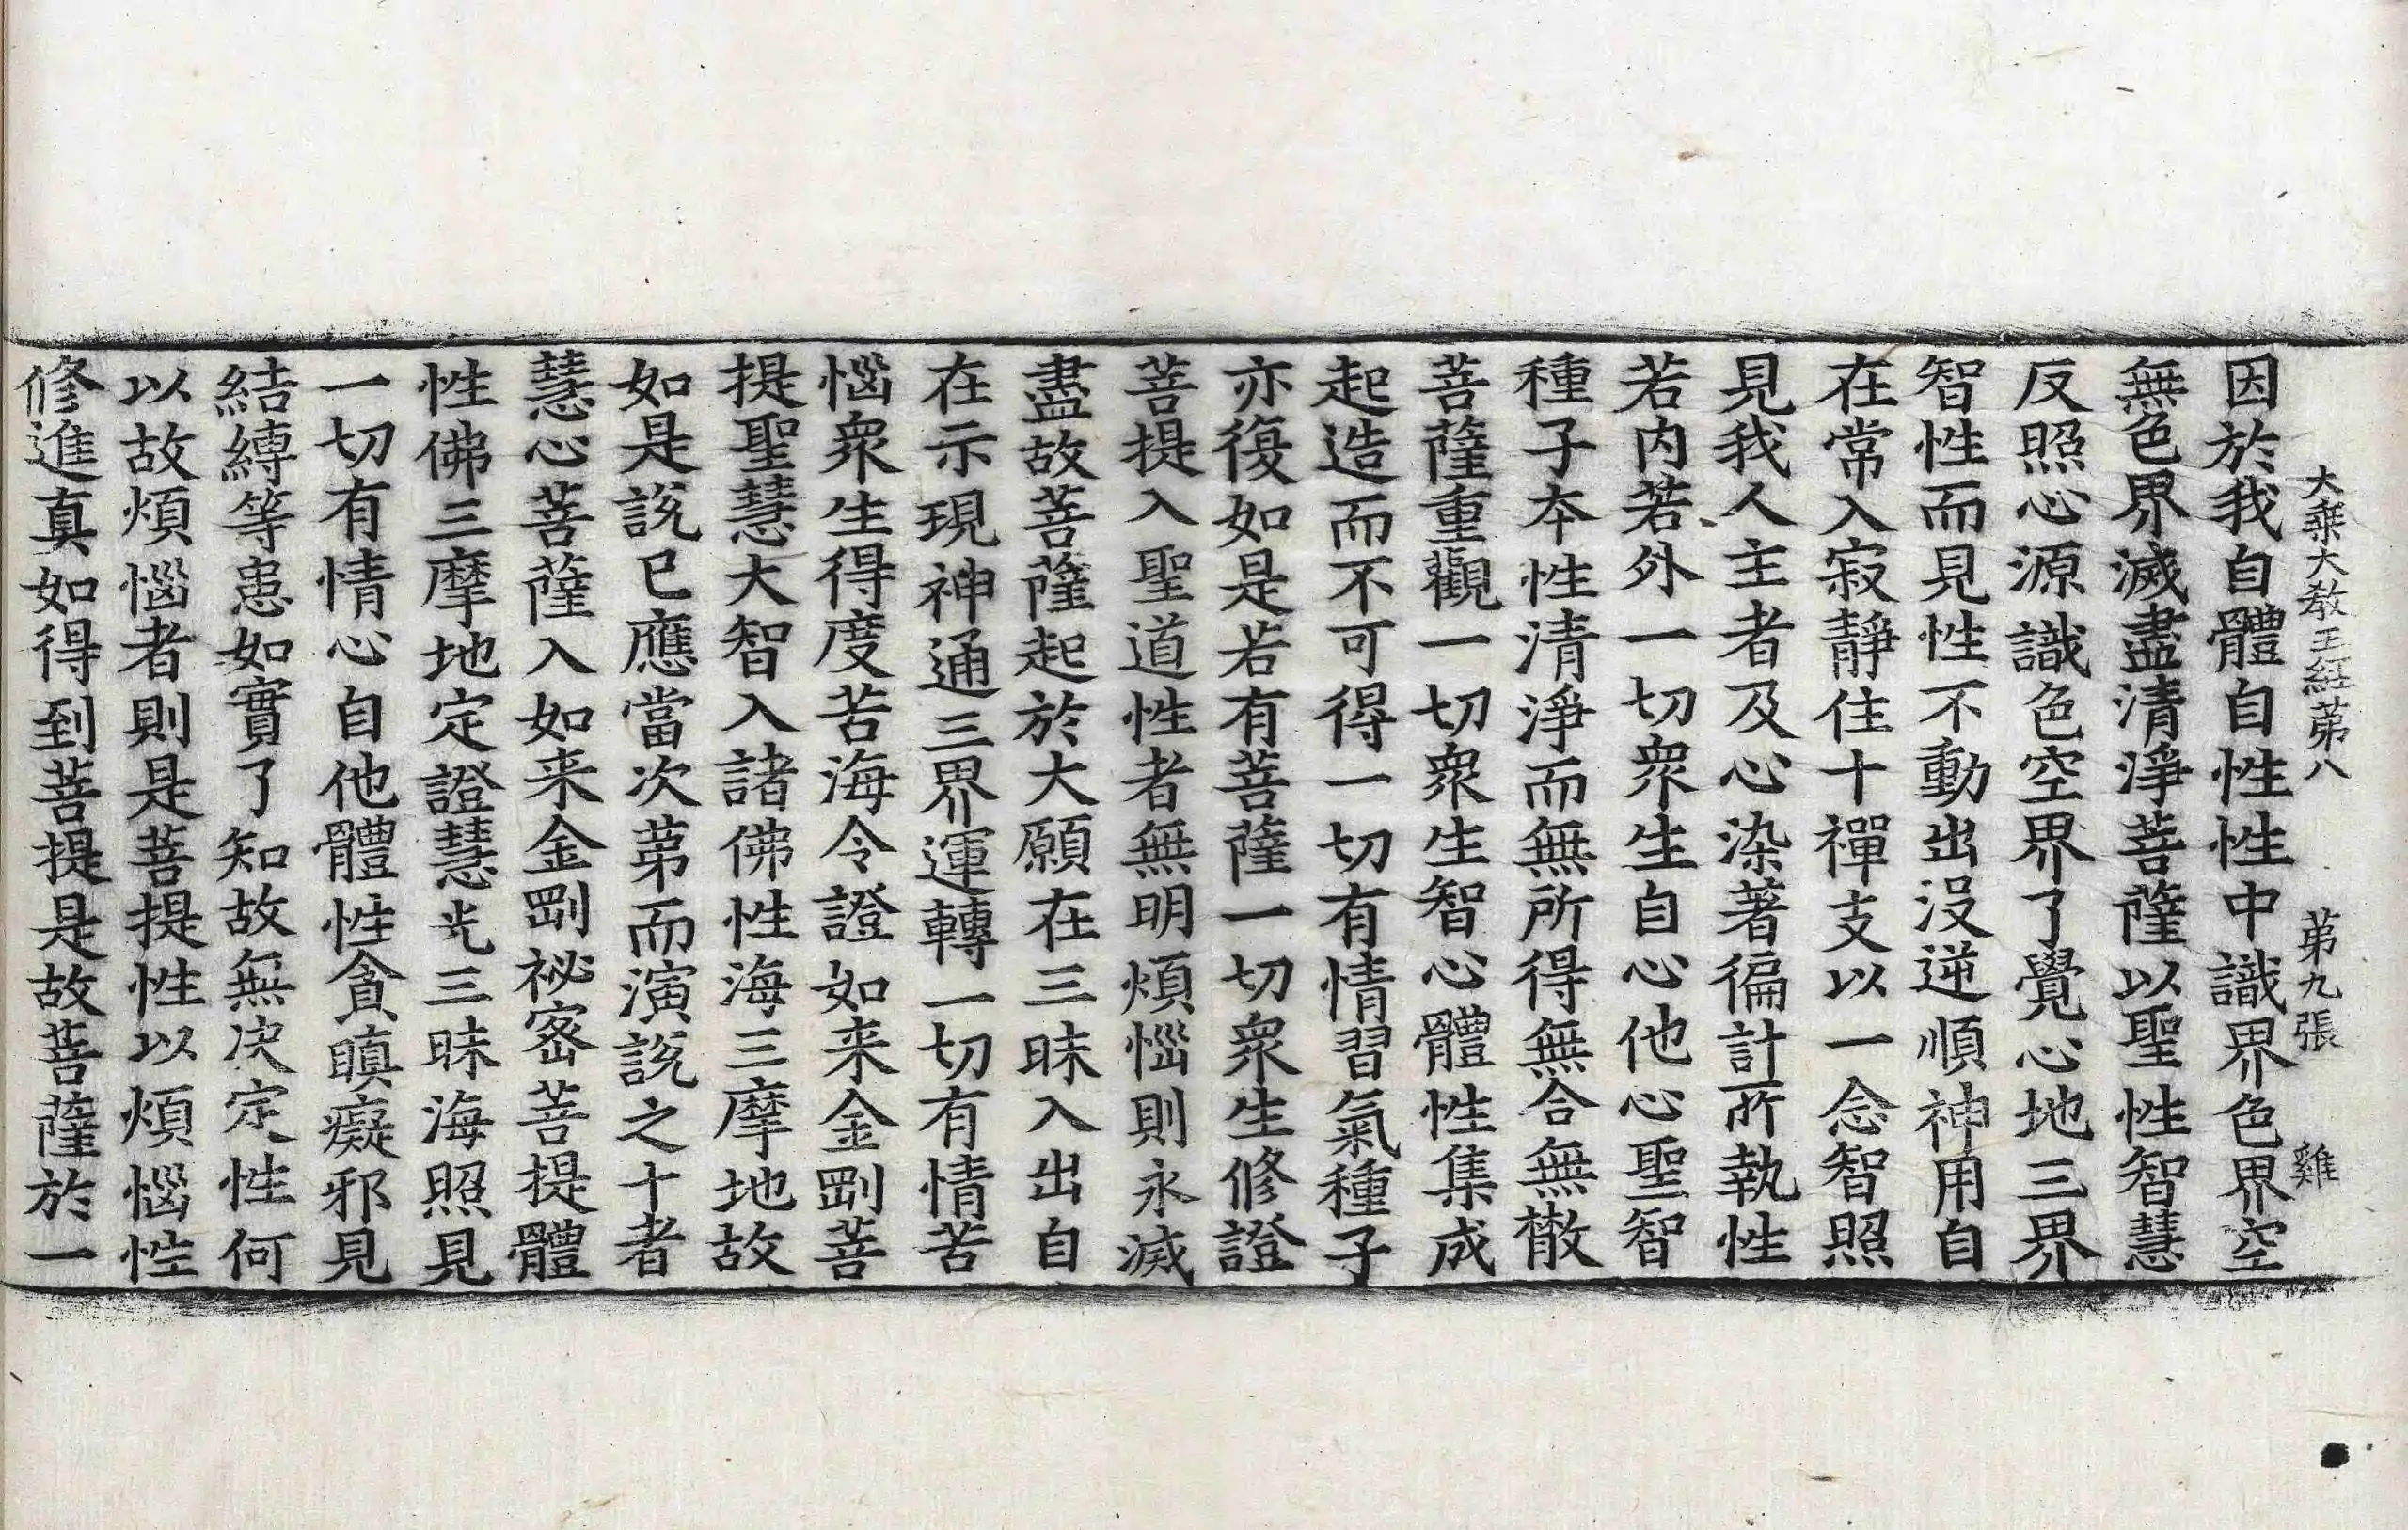 大乗大教王経苐八　苐九張　雞
因於我自體自性性中識界色界空
無色界滅盡清淨菩薩以聖性智慧
反照心源識色空界了覺心地三界
智性而見性不動出没逆順神用自
在常入寂靜住十禪支以一念智照
見我人主者及心染著徧計所執性
若内若外一切衆生自心他心聖智
種子夲性清淨而無所得無合無散
菩薩重觀一切衆生智心體性集成
起造而不可得一切有情習氣種子
亦復如是若有菩薩一切衆生修證
菩提入聖道性者無明煩惱則永滅
盡故菩薩起於大願在三昧入出自
在示現神通三界運轉一切有情苦
惱衆生得度苦海令證如来金剛菩
提聖慧大智入諸佛性海三摩地故
如是説已應當次苐而演説之十者
慧心菩薩入如来金剛祕密菩提體
性佛三摩地定證慧光三昧海照見
一切有情心自他體性貪瞋癡邪見
結縛等患如實了知故無决定性何
以故煩惱者則是菩提性以煩惱性
修進真如得到菩提是故菩薩於一